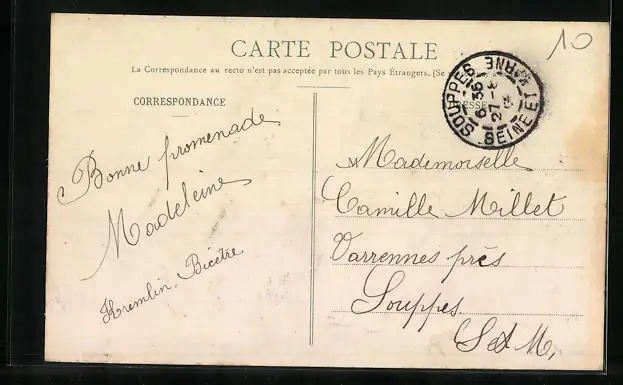 10
CARTE POSTALE
La Correspondance au recto n'est pas acceptée par tous les Pays Étrangers. (Se
CORRESPONDANCE
ESSE
SOUPPES
SEINE ET MARNE
6 35
27
Bonne promenade
Madeleine
Kremlin-Bicêtre
Mademoiselle
Camille Millet
Varrennes près
Souppes
S et M,